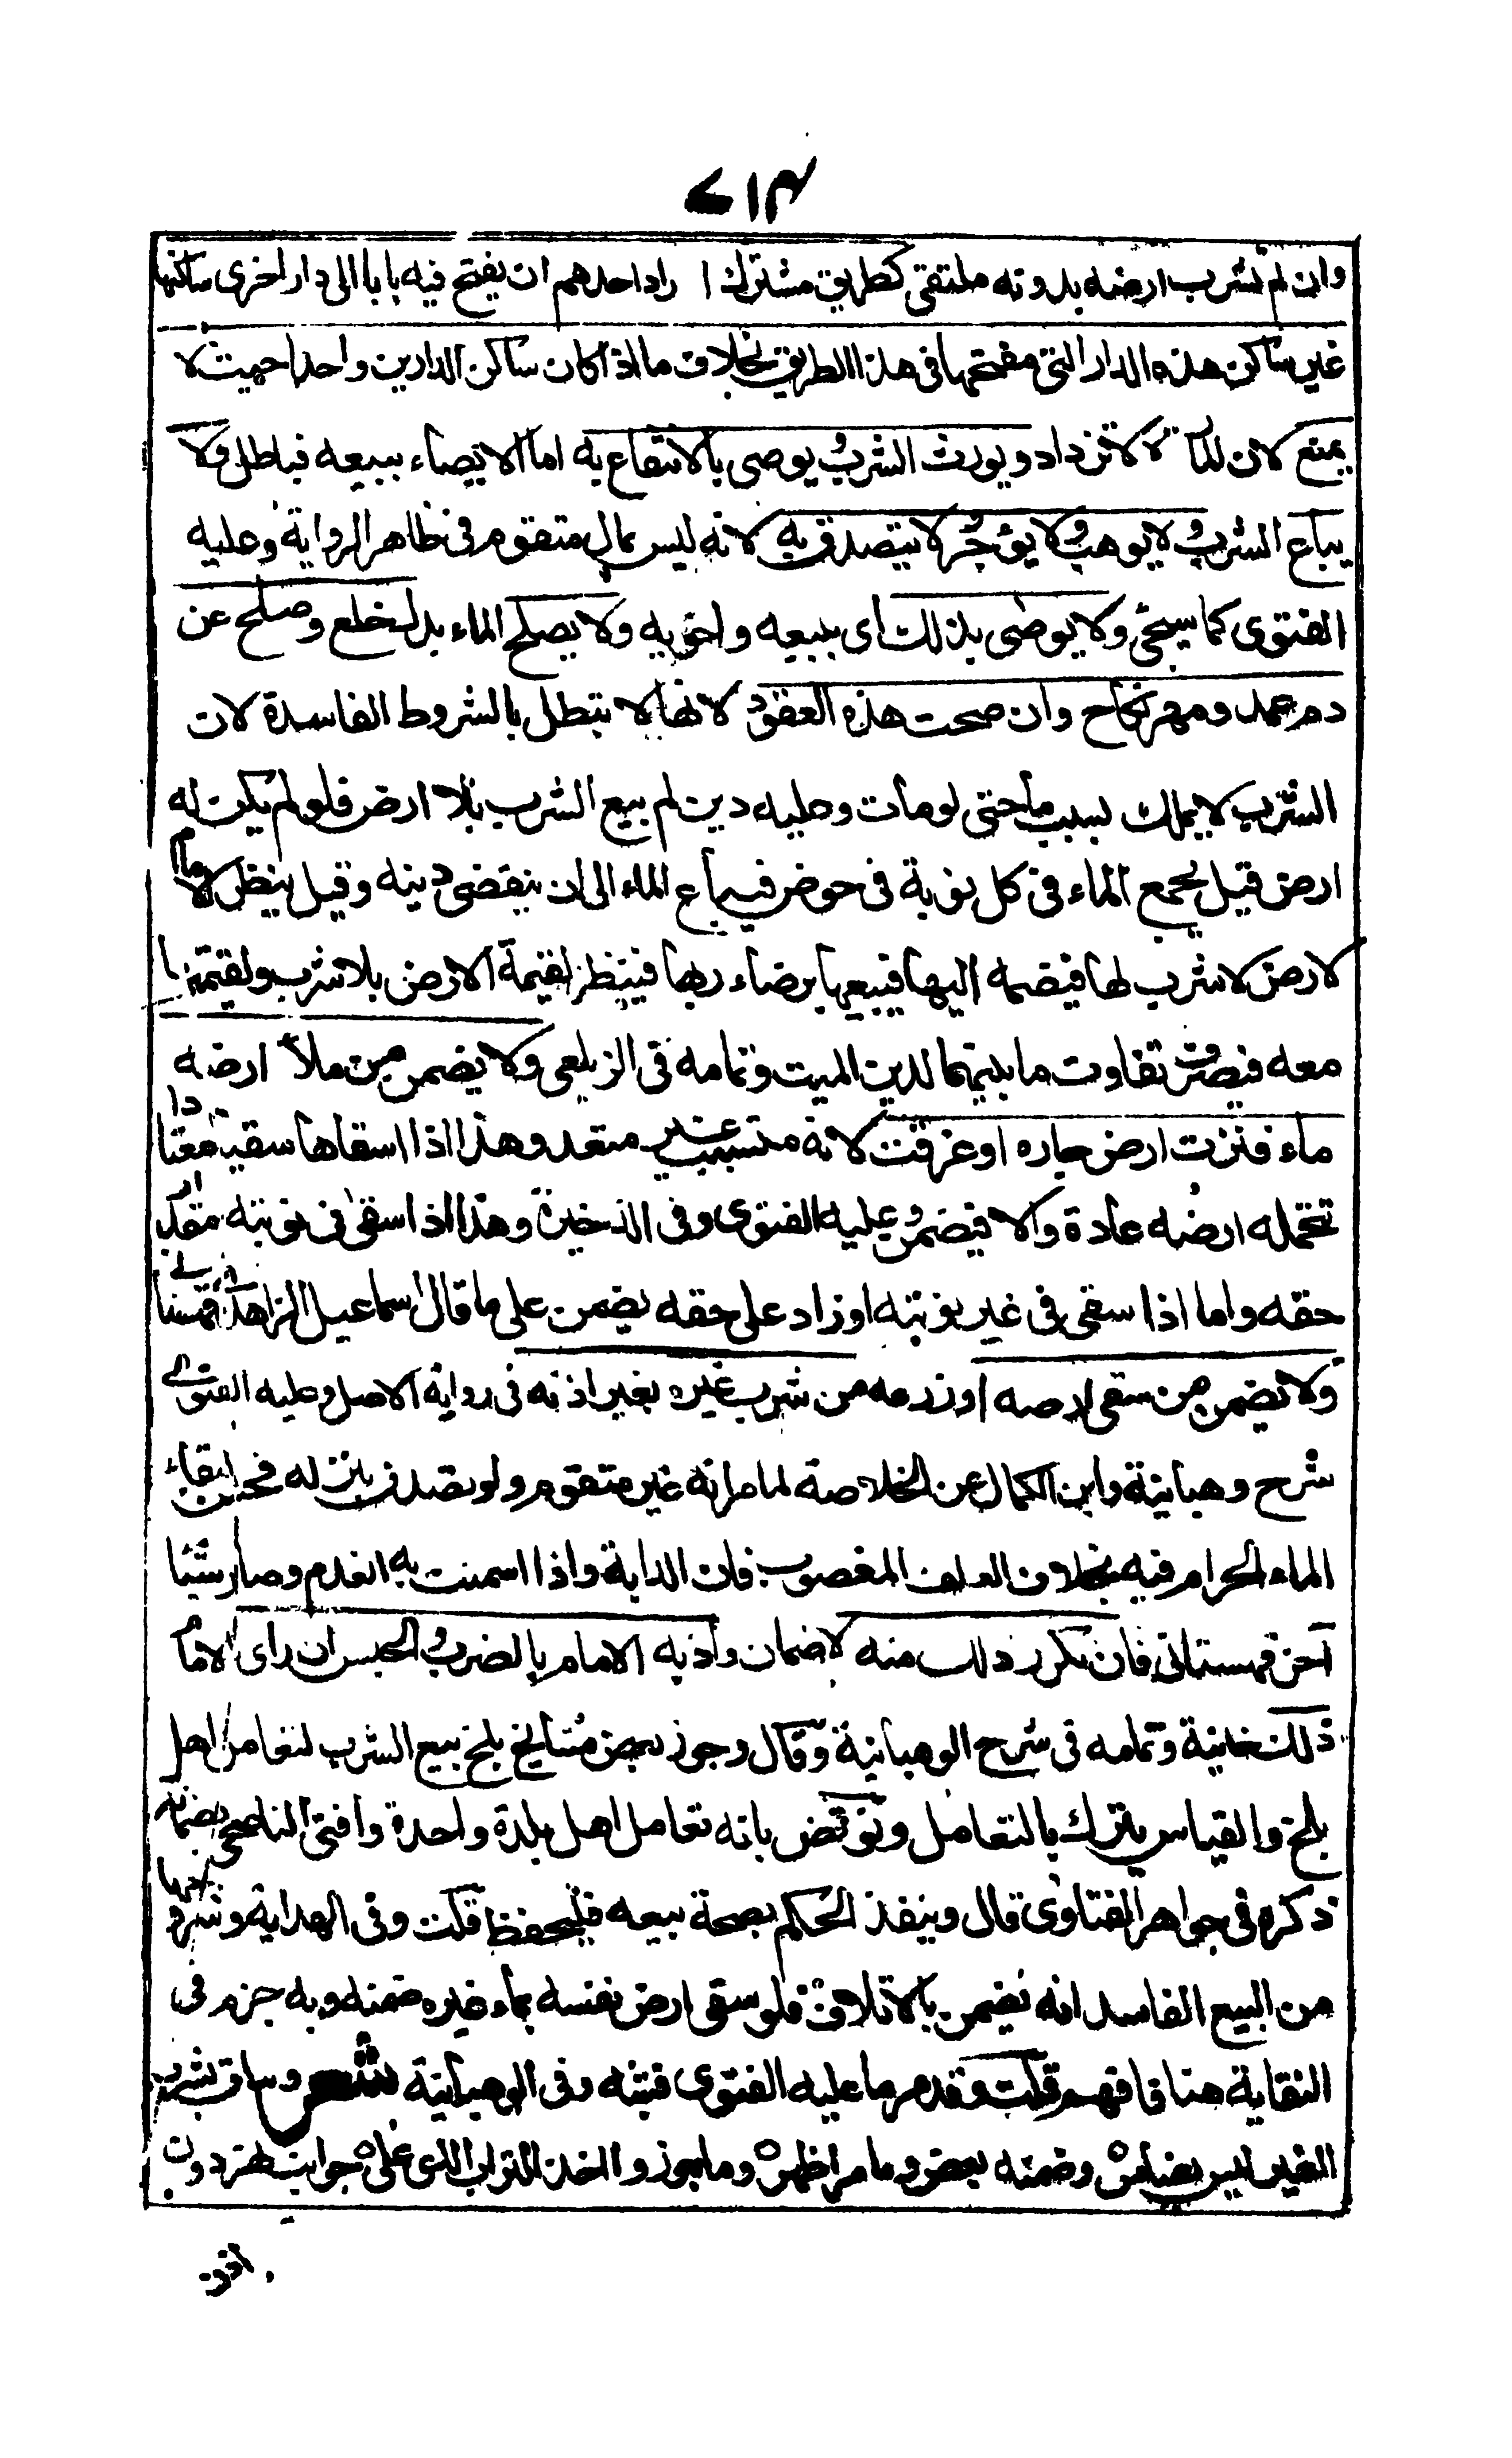 ٧١٣
وان لم تشرب ارضه بدونه ملتقى كطريق مشترك اراد احدهم ان يفتح فيه بابا الى دار اخرى ساكنها
غير ساكن هذه الدار التى مفتحها فى هذا الطريق بخلاف ما اذا كان ساكن الدارين واحدا حيث لا
يمنع لان المارة لا تزداد ويورث الشرب يوصى بالانتفاع به اما الايصاء ببيعه فباطل ولا
يباع الشرب ولا يوهب ولا يؤجر لا يتصدق به لانه ليس بمال متقوم فى ظاهر الرواية وعليه
الفتوى كما سيجئ ولا يوصى بذلك اى ببيعه واخويه ولا يصلح الماء بدل خلع وصلح عن
دم عمد ومهر نكاح وان صحت هذه العقود لانها لا تبطل بالشروط الفاسدة لان
الشرب لا يملك بسبب ما حتى لو مات وعليه دين لم يبع الشرب بلا ارض فلو لم يكن له
ارض قيل يجمع الماء فى كل نوبة فى حوض فيباع الماء الى ان ينقضى دينه وقيل ينظر الامام
لارض لا شرب لها فيضمه اليها فيبيعها برضاء ربها فينظر لقيمة الارض بلا شرب ولقيمتها
معه فيصرف تفاوت ما بينهما لدين الميت وتمامه فى الزيلعى ولا يضمن من ملأ ارضه
ماء فنزت ارض جاره او غرقت لانه متسبب غير متعد وهذا اذا سقاها سقيا معتادا
تحتمله ارضه عادة والا فيضمن وعليه الفتوى وفى الذخيرة وهذا اذا سقى فى نوبته مقدار
حقه واما اذا سقى فى غير نوبته او زاد على حقه يضمن على ما قال اسماعيل الزاهد قهستانى
ولا يضمن من سقى ارضه او زرعه من شرب غيره بغير اذنه فى رواية الاصل وعليه الفتوى
شرح وهبانية وابن الكمال عن الخلاصة لما مر انه غير متقوم ولو تصدق بنزله فحسن لبقاء
الماء الحرام فيه بخلاف العلف المغصوب فان الدابة واذا اسمنت به انعدم وصار شيئا
آخر قهستانى فان تكرر ذلك منه لا ضمان وادبه الامام بالضرب والحبس ان راى الامام
ذلك خانية وتمامه فى شرح الوهبانية وقال وجوز بعض مشايخ بلخ بيع الشرب لتعامل اهل
بلخ والقياس يترك بالتعامل ونوقض بانه تعامل اهل بلدة واحدة وافتى الناصحى بضمانه
ذكره فى جواهر الفتاوى قال وينفذ الحكم بصحة بيعه فليحفظ قلت وفى الهداية وشروحها
من البيع الفاسد انه يضمن بالاتلاف فلو سقى ارض نفسه بماء غيره ضمنه وبه جزم فى
النقاية هنا فافهم قلت وقدم ما عليه الفتوى فتنبه وفى الوهبانية شعر وساق بشرب
الغير ليس بضامن وضمنه بعض وما مر اظهر وما جوزوا اخذ التراب الذى على جوانب نهر دون